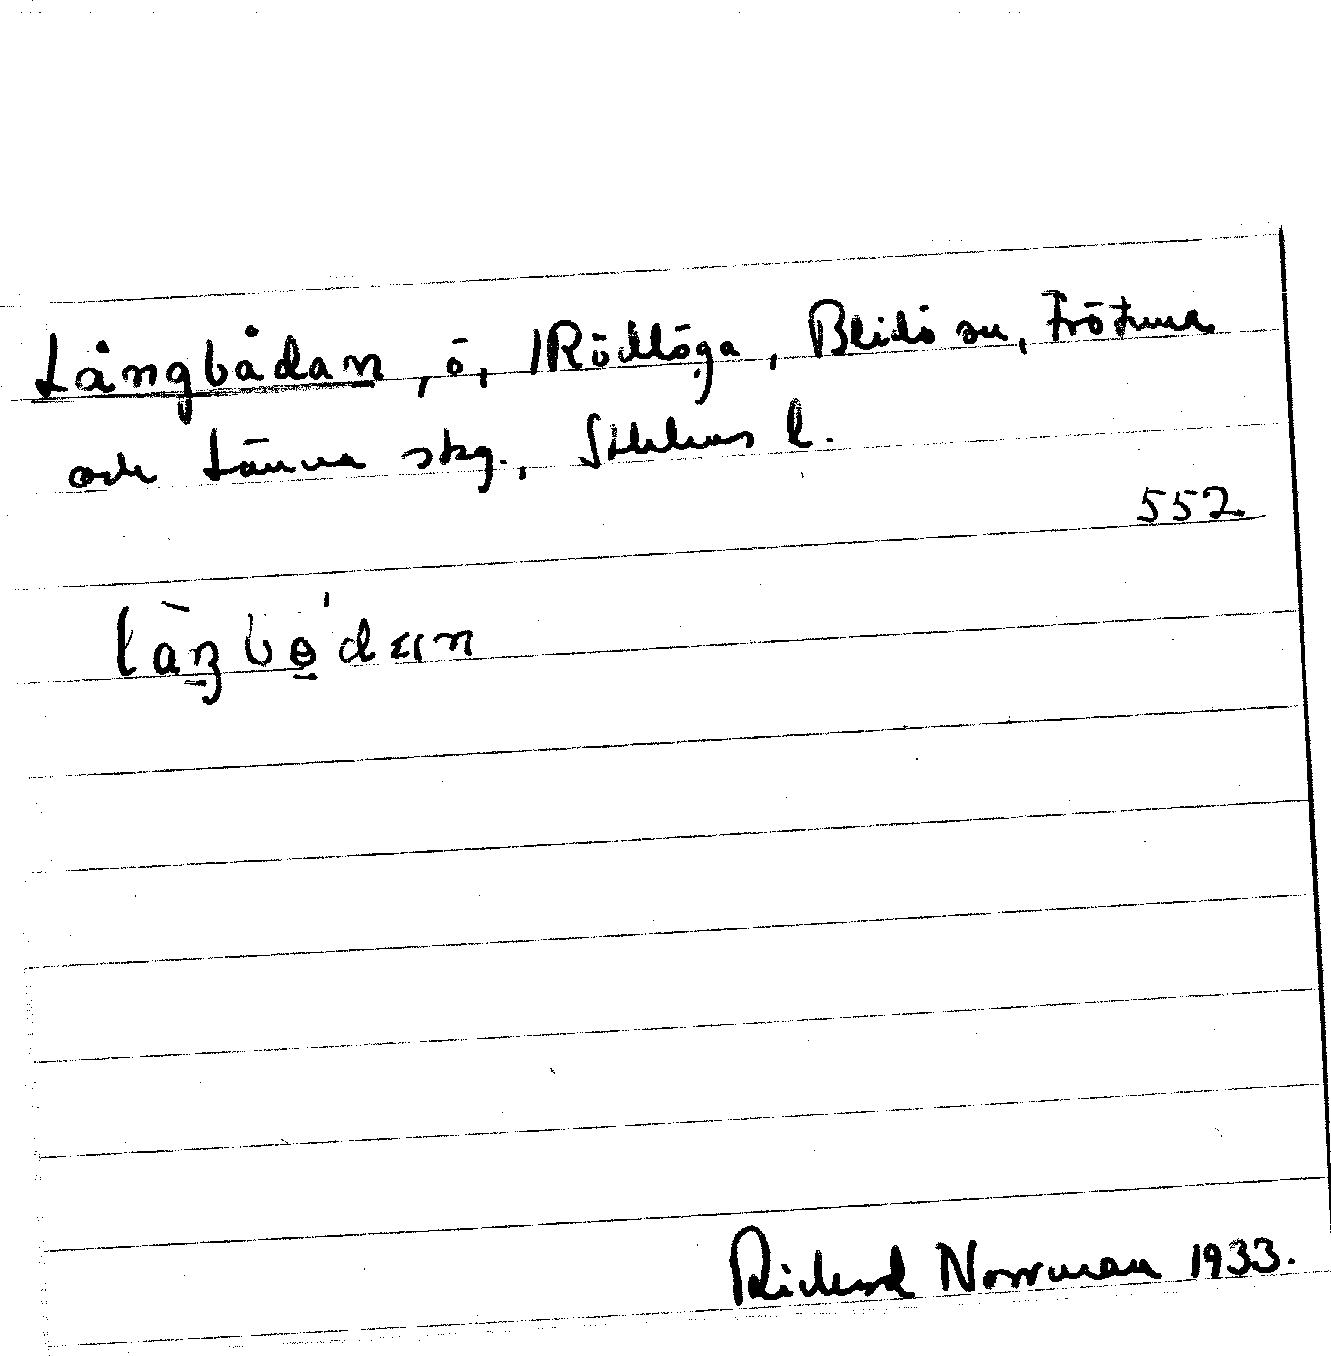 Långbådan, ö, Rödlöga, Blidö sn, Frötuna
och Länna skg., Sthlms l.
552
Rickard Norrman 1933.